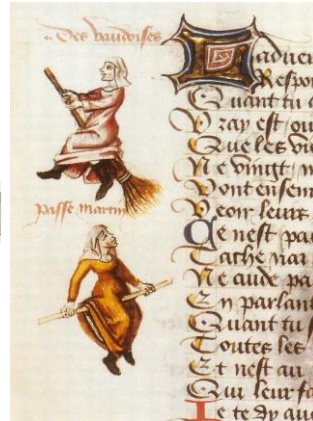 Des vaudoises
passe martin
Laduer
Respon
Quant tu
Vray est ou
Que les vie
Ne vingt n
Dont ensem
Veoir leurs
Ce nest pas
Tache nai
Ne cuide pa
En parlant
Quant tu s
Toutes les
Et nest au
Qui leur fa
Je te dy auo